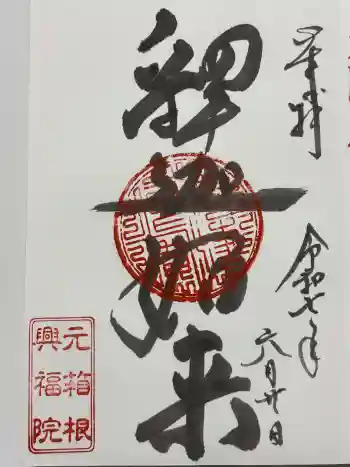 奉拝
令和七年
六月廿日
釋迦如来
元箱根
興福院